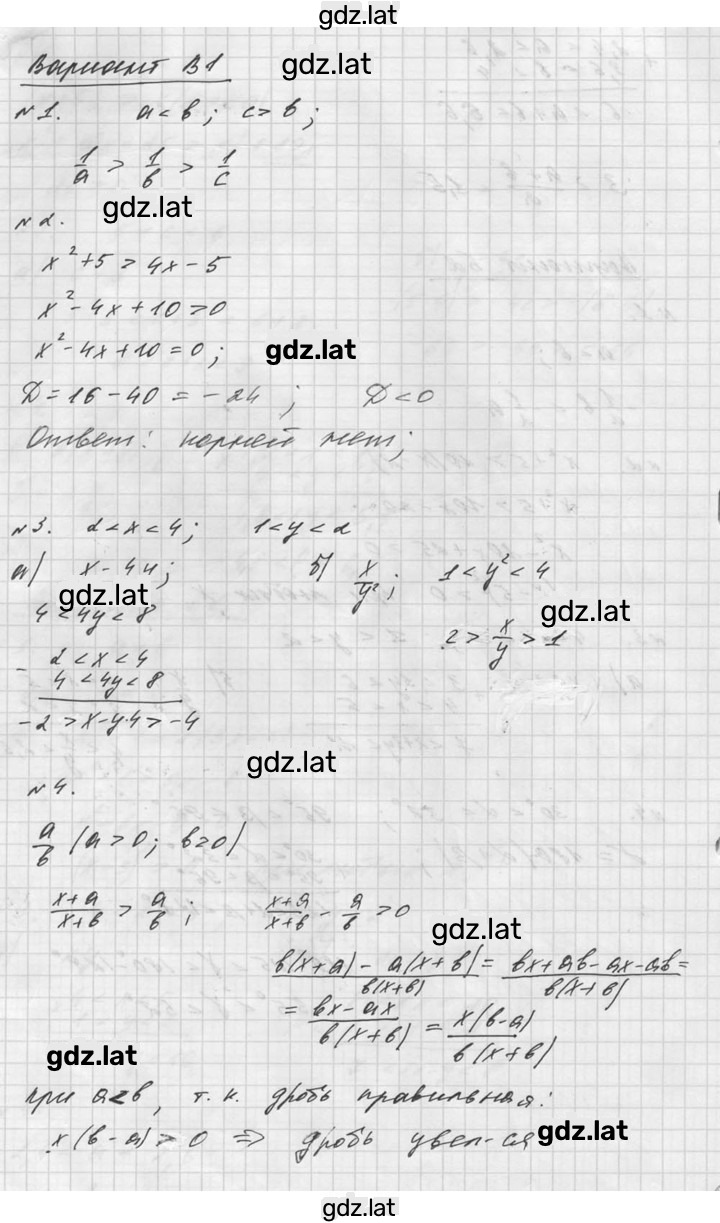 gdz.lat
Вариант В1
gdz.lat
№1. a < b ; c > b ;
1/a > 1/b > 1/c
gdz.lat
№2.
x² + 5 > 4x - 5
x² - 4x + 10 > 0
x² - 4x + 10 = 0 ;
gdz.lat
D = 16 - 40 = -24 ; D < 0
Ответ: корней нет;
№3. 2 < x < 4 ; 1 < y < 2
а) x - 4y ; б) x/y² ; 1 < y² < 4
gdz.lat
gdz.lat
4 < 4y < 8
2 > x/y > 1
- 2 < x < 4
4 < 4y < 8
-2 > x - y·4 > -4
gdz.lat
№4.
a/b (a > 0; b > 0)
(x+a)/(x+b) > a/b ; (x+a)/(x+b) - a/b > 0
gdz.lat
(b(x+a) - a(x+b))/(b(x+b)) = (bx+ab-ax-ab)/(b(x+b)) =
= (bx-ax)/(b(x+b)) = x(b-a)/(b(x+b))
gdz.lat
при a < b, т.к. дробь правильная:
x(b-a) > 0 ⇒ дробь увел-ся
gdz.lat
gdz.lat